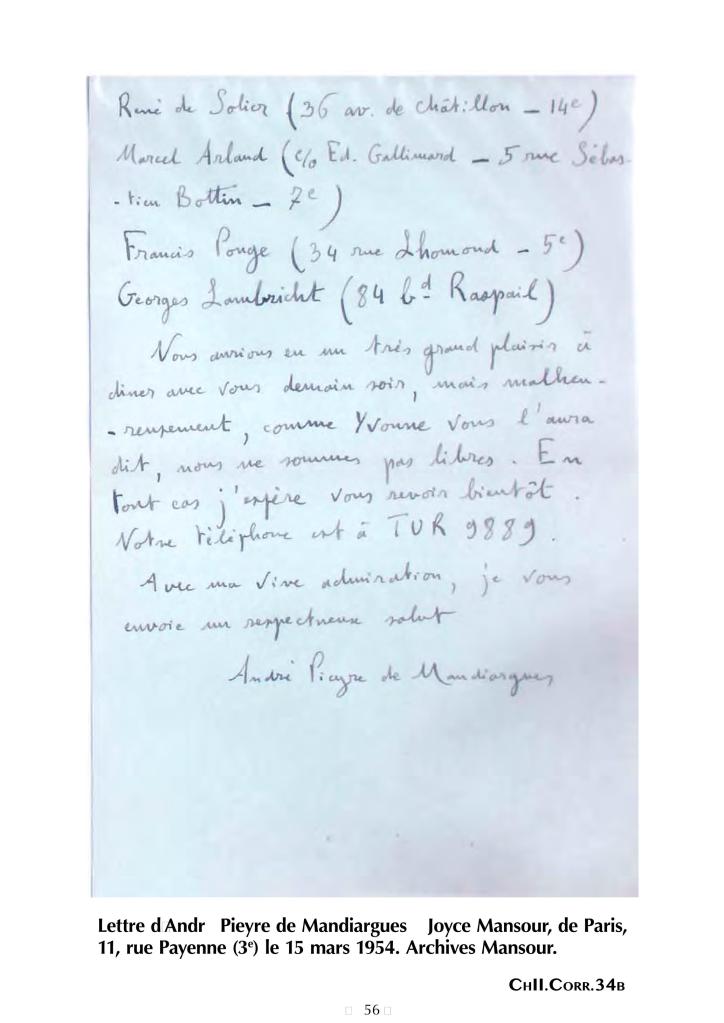 René de Solier (36 av. de Châtillon – 14e)
Marcel Arland (c/o Ed. Gallimard – 5 rue Sébas-
-tien Bottin – 7e)
Francis Ponge (34 rue Lhomond – 5e)
Georges Lambricht (84 bd Raspail)
Nous aurions eu un très grand plaisir à
dîner avec vous demain soir, mais malheu-
-reusement, comme Yvonne vous l'aura
dit, nous ne sommes pas libres. En
tout cas j'espère vous revoir bientôt.
Notre téléphone est à TUR 9889.
Avec ma vive admiration, je vous
envoie un respectueux salut
André Pieyre de Mandiargues
Lettre d Andr Pieyre de Mandiargues Joyce Mansour, de Paris,
11, rue Payenne (3e) le 15 mars 1954. Archives Mansour.
CHII.CORR.34B
56